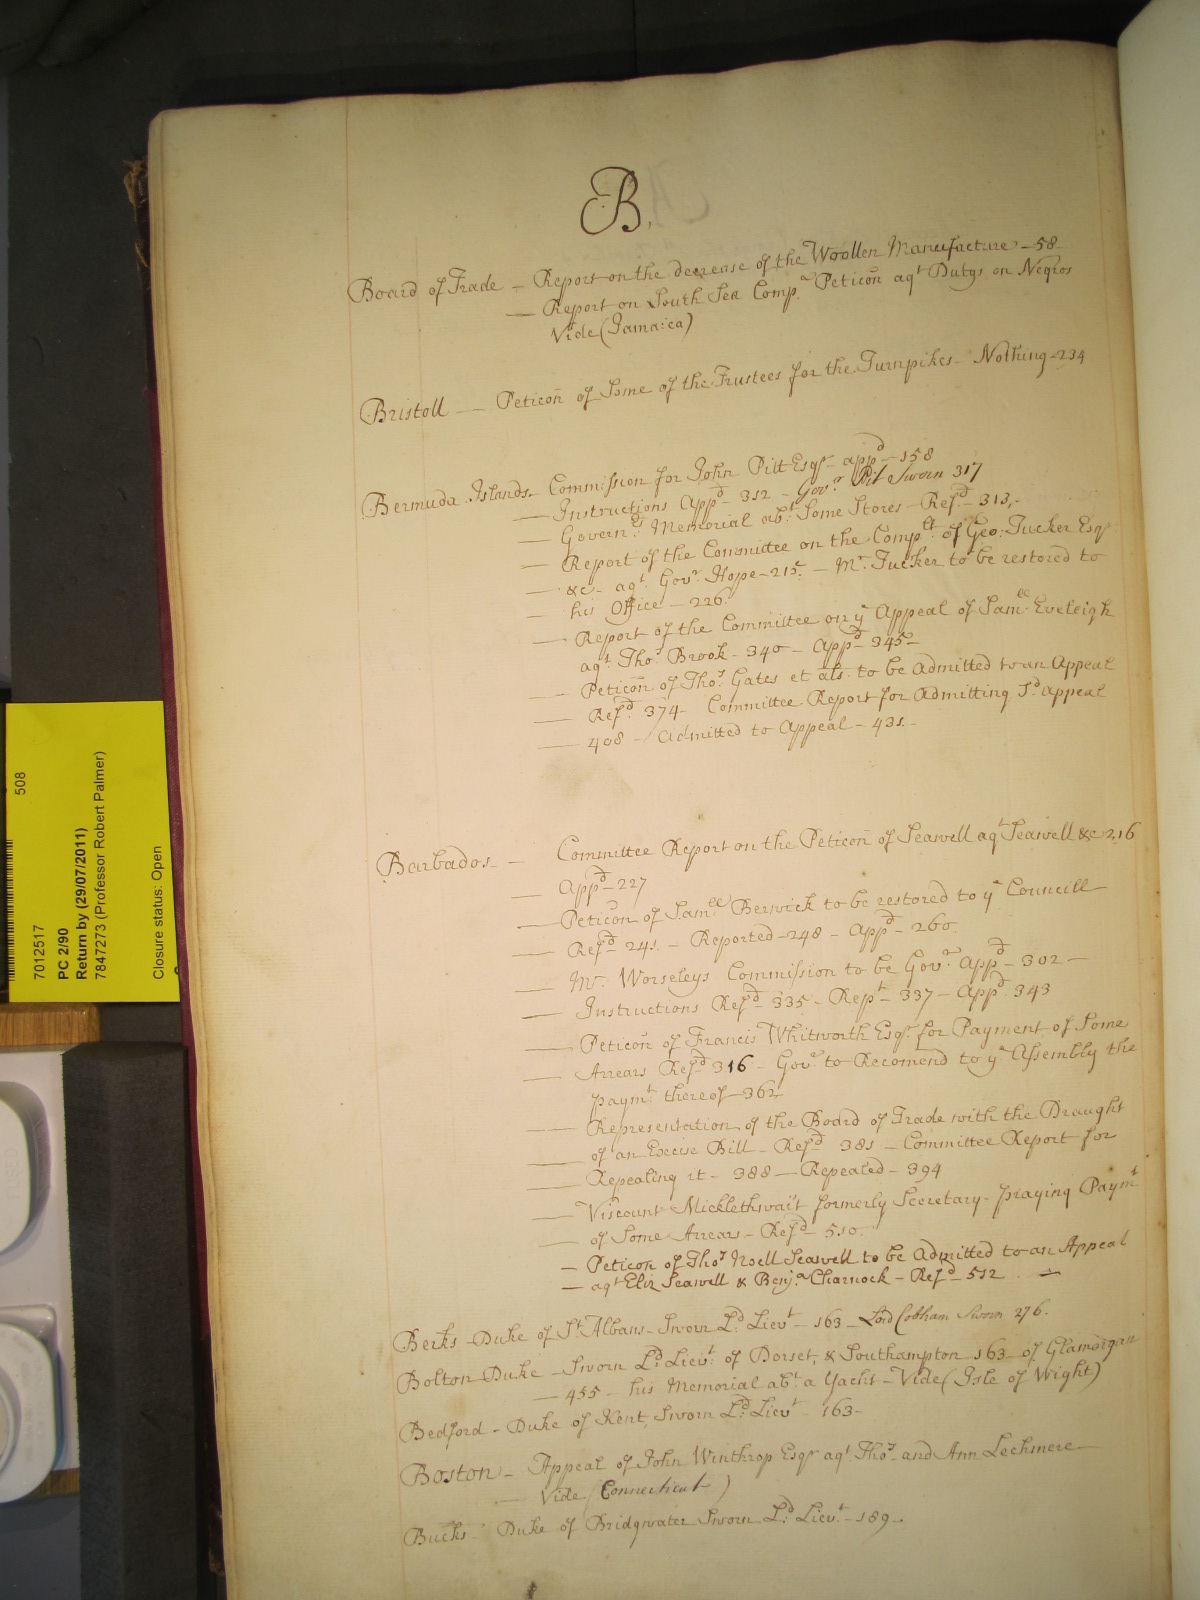 B.
Board of Trade — Report on the decrease of the Woollen Manufacture — 58
— Report on South Sea Comp.ᵃ Peticōn agᵗ Dutys on Negros
Vide (Jamaica)
Bristoll — Peticōn of Some of the Trustees for the Turnpikes — Nothing — 234
Bermuda Islands — Commission for John Pitt Esqʳ appᵈ — 158
— Instructions Appᵈ — 312 — Govʳ Pit Sworn 317
— Governʳˢ Memorial abᵗ Some Stores — Refᵈ — 313 —
— Report of the Committee on the Compˡᵗ of Geo: Tucker Esqʳ
— &c — agᵗ Govʳ Hope — 215 — Mʳ Tucker to be restored to
— his Office — 226
— Report of the Committee on yᵉ Appeal of Samˡˡ Eveleigh
agᵗ Thoˢ Brook — 340 — Appᵈ — 345 —
— Peticōn of Thoˢ Gates et als. to be Admitted to an Appeal
— Refᵈ 374 — Committee Report for Admitting Sᵈ Appeal
— 408 — Admitted to Appeal — 431 —
Barbados — Committee Report on the Peticōn of Seawell agᵗ Seawell &c 216
— Appᵈ — 227
— Peticōn of Samˡˡ Berwick to be restored to yᵉ Councill
— Refᵈ 241 — Reported — 248 — Appᵈ — 260
— Mʳ Worseleys Commission to be Govʳ Appᵈ — 302 —
— Instructions Refᵈ 335 — Repᵗ — 337 — Appᵈ 343
— Peticōn of Francis Whitworth Esqʳ for Payment of Some
— Arrears Refᵈ 316 — Govʳ to Recomend to yᵉ Assembly the
paymᵗ thereof — 362
— Representation of the Board of Trade with the Draught
— of an Excise Bill — Refᵈ 381 — Committee Report for
— Repealing it — 388 — Repealed — 394
— Viscount Micklethwait formerly Secretary — praying Paymᵗ
— of Some Arrears — Refᵈ — 510
— Peticon of Thoˢ Noell Seawell to be Admitted to an Appeal
— agᵗ Eliz Seawell & Benjᵃ Charnock — Refᵈ — 512 —
Berks — Duke of Sᵗ Albans — Sworn Lᵈ Lievᵗ — 163 — Lord Cobham Sworn 276.
Bolton Duke — Sworn Lᵈ Lievᵗ of Dorset, & Southampton 163 — of Glamorgan
— 455 — his Memorial abᵗ a Yacht — Vide (Isle of Wight)
Bedford — Duke of Kent, Sworn Lᵈ Lievᵗ — 163 —
Boston — Appeal of John Winthrop Esqʳ agᵗ Thoˢ and Ann Lechmere —
— Vide (Connecticut)
Bucks — Duke of Bridgwater Sworn Lᵈ Lievᵗ — 189 —
508
7012517
PC 2/90
Return by (29/07/2011)
7847273 (Professor Robert Palmer)
Closure status: Open